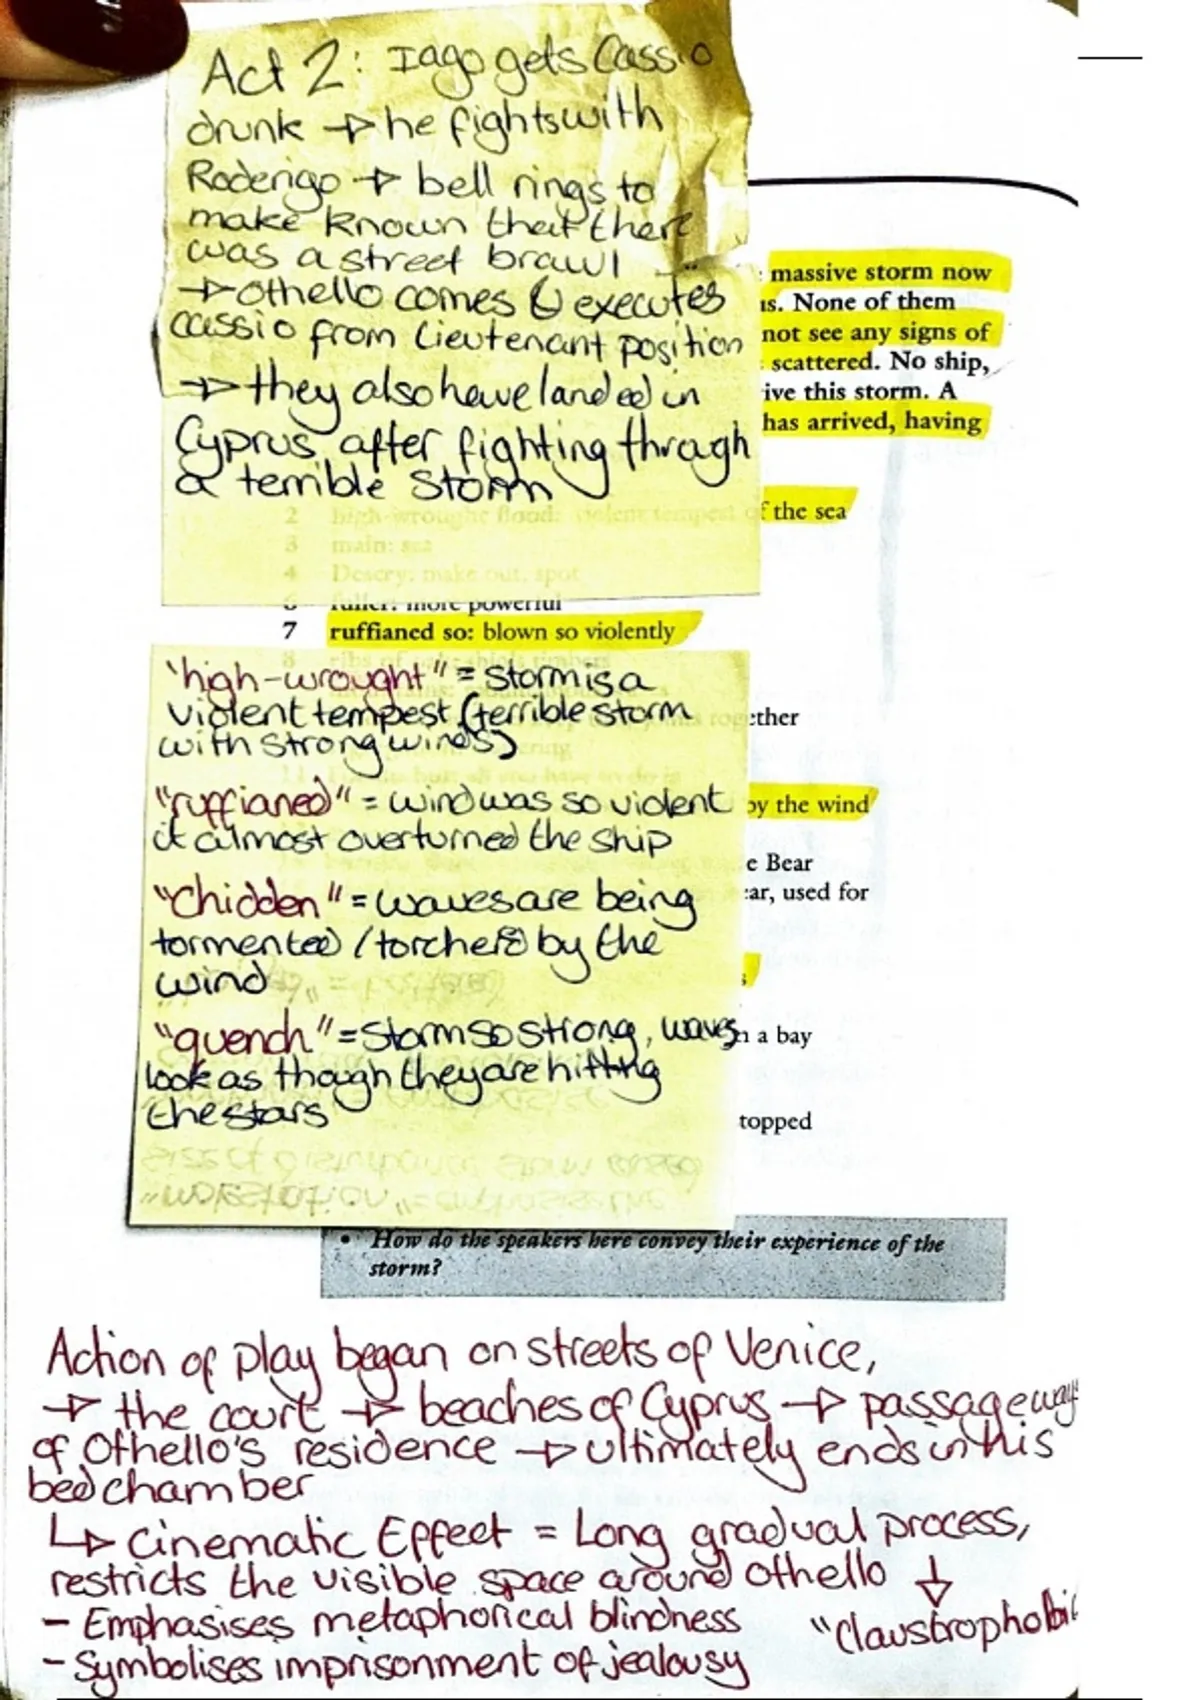 Act 2: Iago gets Cassio
drunk → he fights with
Roderigo → bell rings to
make known that there
was a street brawl
→ Othello comes & executes
Cassio from Lieutenant position
→ they also have landed in
Cyprus after fighting through
a terrible storm
massive storm now
us. None of them
not see any signs of
scattered. No ship,
ive this storm. A
has arrived, having
2 high-wrought flood: violent tempest of the sea
3 main: sea
4 Descry: make out, spot
6 fuller: more powerful
7 ruffianed so: blown so violently
"high-wrought" = Storm is a
violent tempest (terrible storm
with strong winds)
ether
"ruffianed" = wind was so violent
it almost overturned the ship
by the wind
e Bear
ear, used for
"Chidden" = waves are being
tormented / torchered by the
wind
s
"quench" = Storm so strong, waves
look as though they are hitting
the stars
n a bay
topped
• How do the speakers here convey their experience of the
storm?
Action of play began on streets of Venice,
→ the court → beaches of Cyprus → passageways
of Othello's residence → ultimately ends in his
bedchamber
↳ Cinematic Effect = Long gradual process,
restricts the visible space around Othello ↓
- Emphasises metaphorical blindness "Claustrophobic
- Symbolises imprisonment of jealousy